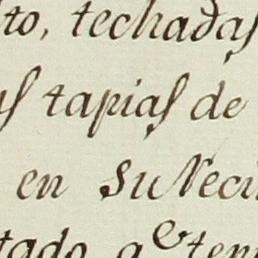 to, techadas
s tapias de
en su Veci
tado, q.e ten